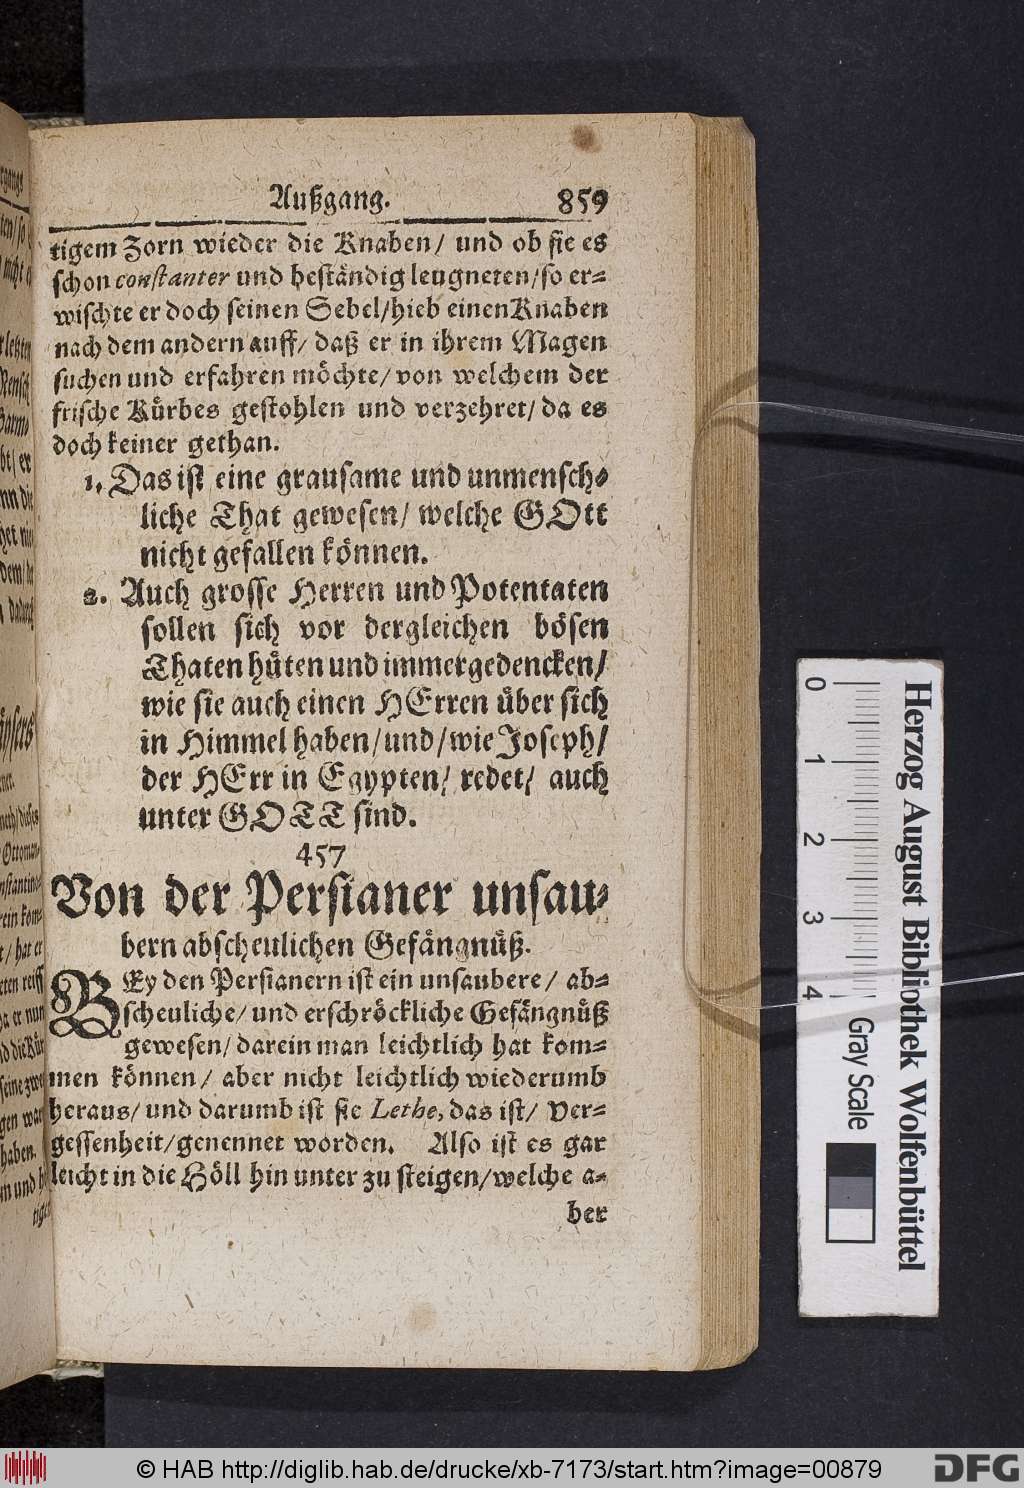 Außgang. 859
tigem Zorn wieder die Knaben/ und ob sie es
schon constanter und beständig leugneten/so er-
wischte er doch seinen Sebel/hieb einen Knaben
nach dem andern auff/ daß er in ihrem Magen
suchen und erfahren möchte/ von welchem der
frische Kürbes gestohlen und verzehret/ da es
doch keiner gethan.
1. Das ist eine grausame und unmensch-
liche That gewesen/ welche GOtt
nicht gefallen können.
2. Auch grosse Herren und Potentaten
sollen sich vor dergleichen bösen
Thaten hüten und immer gedencken/
wie sie auch einen HErren über sich
in Himmel haben/und/wie Joseph/
der HErr in Egypten/ redet/ auch
unter GOTT sind.
457
Von der Persianer unsau-
bern abscheulichen Gefängnüß.
BEy den Persianern ist ein unsaubere/ ab-
scheuliche/ und erschröckliche Gefängnüß
gewesen/ darein man leichtlich hat kom-
men können/ aber nicht leichtlich wiederumb
heraus/ und darumb ist sie Lethe, das ist/ Ver-
gessenheit/genennet worden. Also ist es gar
leicht in die Höll hin unter zu steigen/welche a-
ber
Herzog August Bibliothek Wolfenbüttel
0 1 2 3 4
Gray Scale
© HAB http://diglib.hab.de/drucke/xb-7173/start.htm?image=00879
DFG